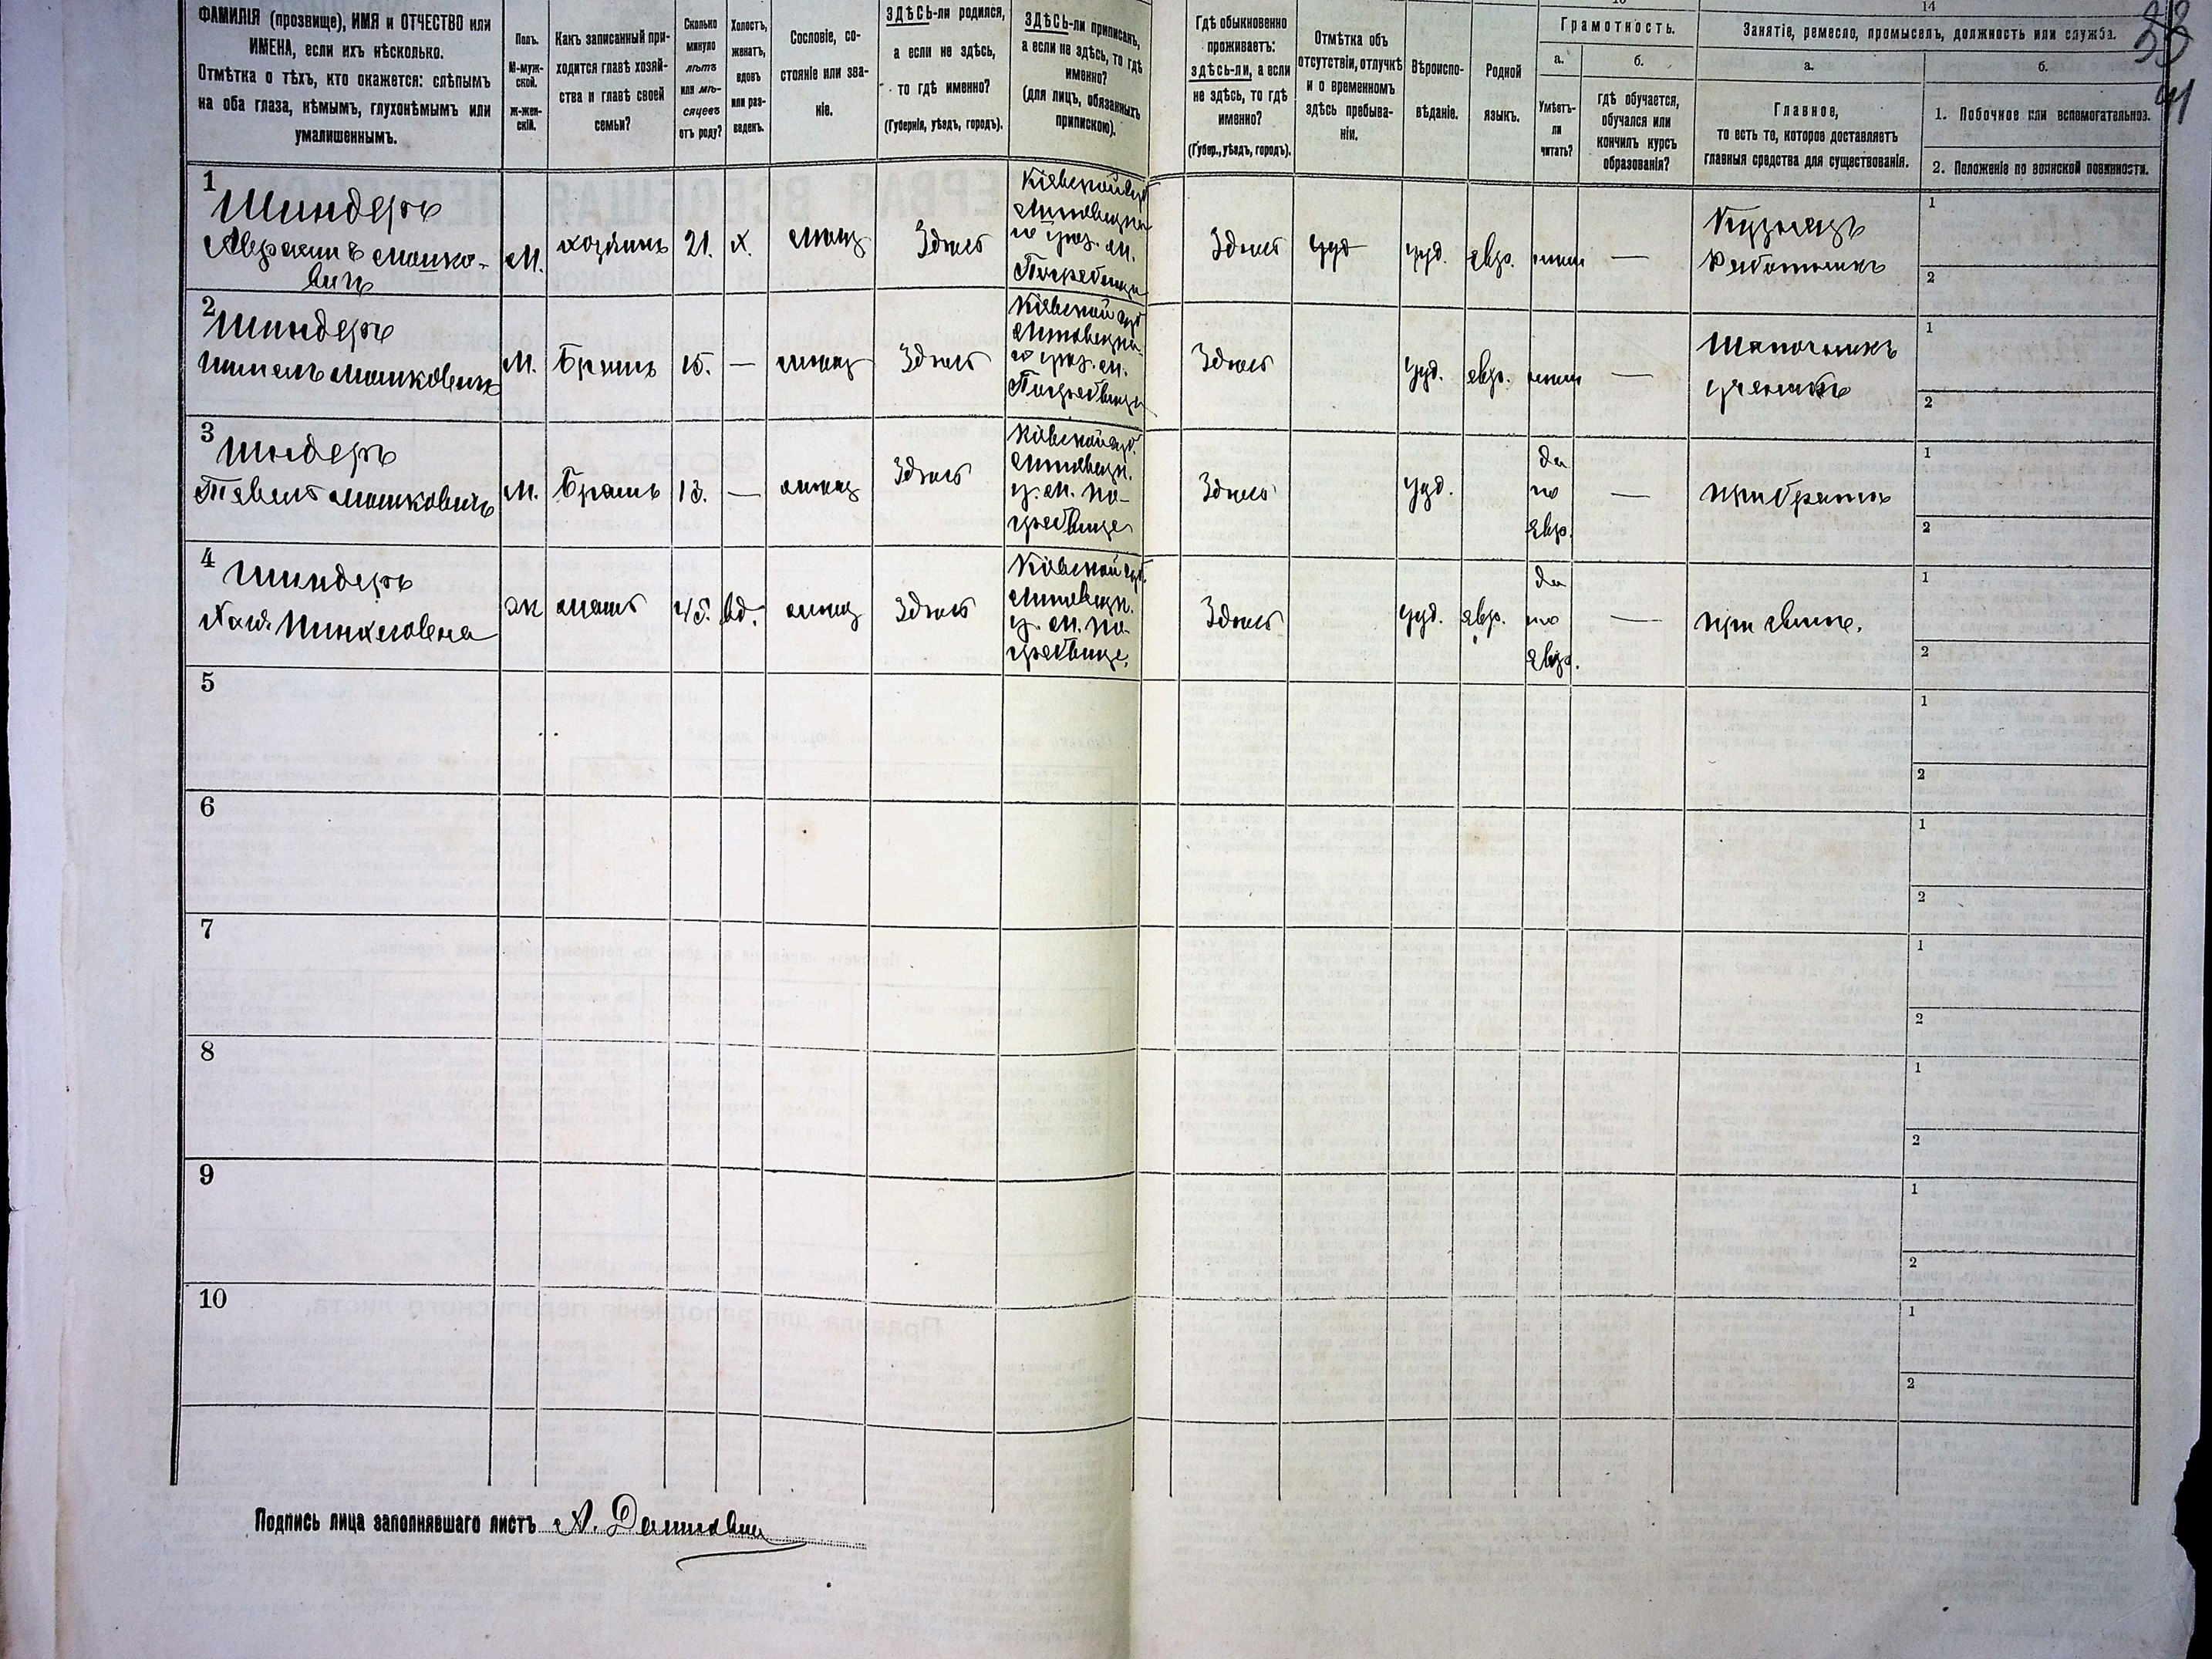 14
ФАМИЛІЯ (прозвище), ИМЯ и ОТЧЕСТВО или
ИМЕНА, если ихъ нѣсколько.
Отмѣтка о тѣхъ, кто окажется: слѣпымъ
на оба глаза, нѣмымъ, глухонѣмымъ или
умалишеннымъ.
Полъ.
М-муж-
ской.
Ж-жен-
скій.
Какъ записанный при-
ходится главѣ хозяй-
ства и главѣ своей
семьи?
Сколько
минуло
лѣтъ
или мѣ-
сяцевъ
отъ роду?
Холостъ,
женатъ,
вдовъ
или раз-
веденъ.
Сословіе, со-
стояніе или зва-
ніе.
ЗДѢСЬ-ли родился,
а если не здѣсь,
то гдѣ именно?
(Губернія, уѣздъ, городъ).
ЗДѢСЬ-ли приписанъ,
а если не здѣсь, то гдѣ
именно?
(для лицъ, обязанныхъ
припискою).
Гдѣ обыкновенно
проживаетъ:
здѣсь-ли, а если
не здѣсь, то гдѣ
именно?
(Губер., уѣздъ, городъ).
Отмѣтка объ
отсутствіи, отлучкѣ
и о временномъ
здѣсь пребыва-
ніи.
Вѣроиспо-
вѣданіе.
Родной
языкъ.
Грамотность.
а.
Умѣетъ-
ли
читать?
б.
гдѣ обучается,
обучался или
кончилъ курсъ
образованія?
Занятіе, ремесло, промыселъ, должность или служба.
а.
Главное,
то есть то, которое доставляетъ
главныя средства для существованія.
б.
1. Побочное или вспомогательное.
2. Положеніе по воинской повинности.
41
1
Шиндеръ
Аврамъ Мошко-
вичъ
М.
хозяинъ
21.
х.
мѣщ
Здѣсь
Кіевской губ
Липовецка
го уѣз. м.
Погребище
Здѣсь
іуд.
евр.
Кузнецъ
Работникъ
1
2
2
Шиндеръ
Мошковичъ
М.
Братъ
15.
—
мѣщ
Здѣсь
Кіевской губ
Липовецка-
го уѣз. м.
Погребище
Здѣсь
іуд.
евр.
—
Шапочникъ
ученикъ
1
2
3
Шндеръ
Мошковичъ
М.
Братъ
13.
—
мѣщ
Здѣсь
Кіевской губ.
Липовецк.
у. м. По-
гребище
Здѣсь
іуд.
да
по
Евр.
—
при братѣ
1
2
4
Шиндеръ
Хая Пинхасовна
Ж
мать
45.
вд.
мѣщ
Здѣсь
Кіевской губ.
Липовецк.
у. м. По-
гребище
Здѣсь
іуд.
Евр.
да
по
Евр.
—
при сынѣ.
1
2
5
1
2
6
1
2
7
1
2
8
1
2
9
1
2
10
1
2
Подпись лица заполнявшаго листъ